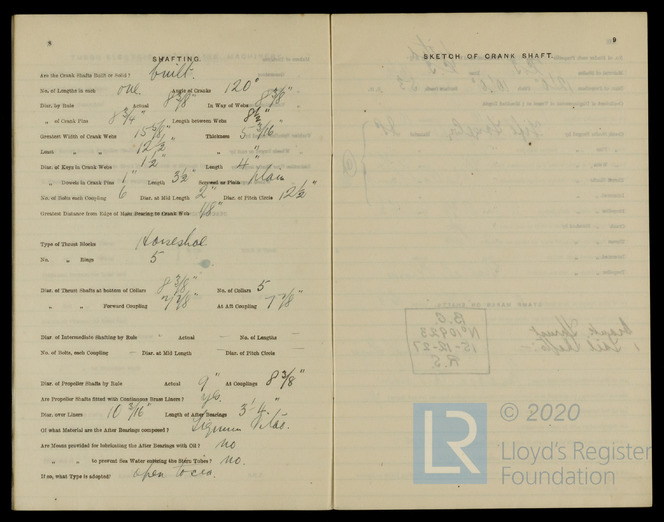 8
SHAFTING.
Are the Crank Shafts Built or Solid? built.
No. of Lengths in each one Angle of Cranks 120°
Diar. by Rule Actual 8 3/8" In Way of Webs 8 3/8"
„ of Crank Pins 8 3/4" Length between Webs
Greatest Width of Crank Webs 15 5/8" Thickness 5 3/16"
Least „ „ „ „
Diar. of Keys in Crank Webs 1 1/2" Length 4"
„ Dowels in Crank Pins 1" Length 3 1/2" Screwed or Plain plain
No. of Bolts each Coupling 6 Diar. at Mid Length 2" Diar. of Pitch Circle 12 1/2"
Greatest Distance from Edge of Main Bearing to Crank Web 1/8"
Type of Thrust Blocks Horseshoe
No. „ Rings 5
Diar. of Thrust Shafts at bottom of Collars 8 3/8" No. of Collars 5
„ „ Forward Coupling 7 7/8" At Aft Coupling 7 7/8"
Diar. of Intermediate Shafting by Rule Actual — No. of Lengths —
No. of Bolts, each Coupling — Diar. at Mid Length — Diar. of Pitch Circle —
Diar. of Propeller Shafts by Rule Actual 9" At Couplings 8 3/8"
Are Propeller Shafts fitted with Continuous Brass Liners? yes.
Diar. over Liners 10 3/16" Length of After Bearings 3' 4"
Of what Material are the After Bearings composed? Lignum Vitae.
Are Means provided for lubricating the After Bearings with Oil? no
„ „ to prevent Sea Water entering the Stern Tubes? no.
If so, what Type is adopted? open to sea.
9
SKETCH OF CRANK SHAFT.
B.C.
No 10923
15-12-27
R.S.
© 2020
LR
Lloyd's Register
Foundation